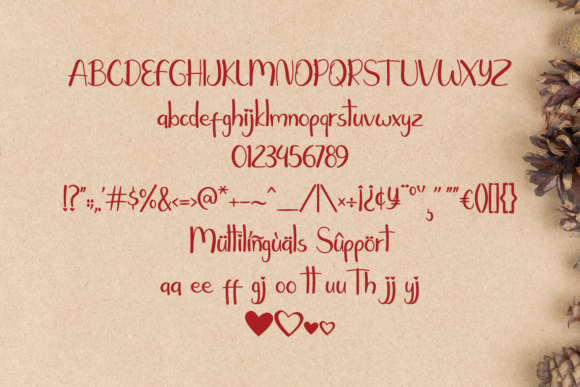 ABCDEFGHIJKLMNOPQRSTUVWXYZ
abcdefghijklmnopqrstuvwxyz
0123456789
!?":;,.'#$%&<=>@*+-~^_/|\×÷¡¿¢¥¨ºª¸""€()[]{}
Mültilíñgùäls Sûppört
aa ee ff gj oo tt uu Th jj yj